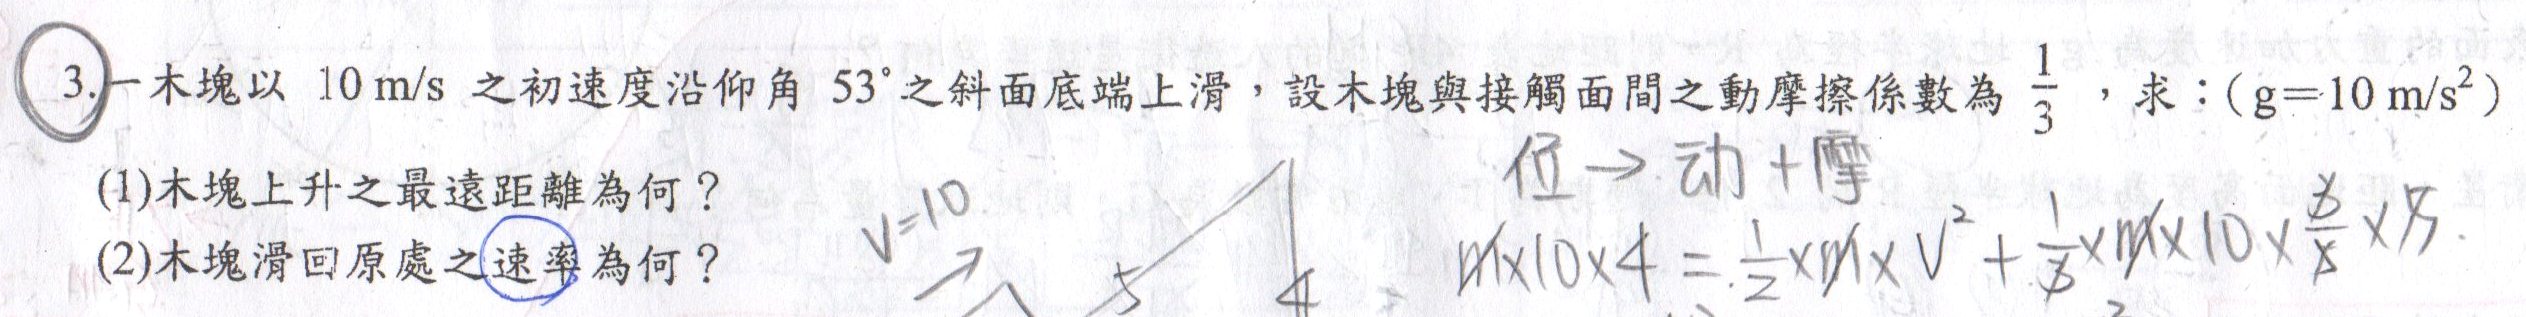 3.一木塊以 10 m/s 之初速度沿仰角 53°之斜面底端上滑，設木塊與接觸面間之動摩擦係數為 1/3 ，求：（g＝10 m/s²）
(1)木塊上升之最遠距離為何？
位→动+摩
V=10
(2)木塊滑回原處之速率為何？
m×10×4=1/2×m×V²+1/3×m×10×3/5×5
5
4